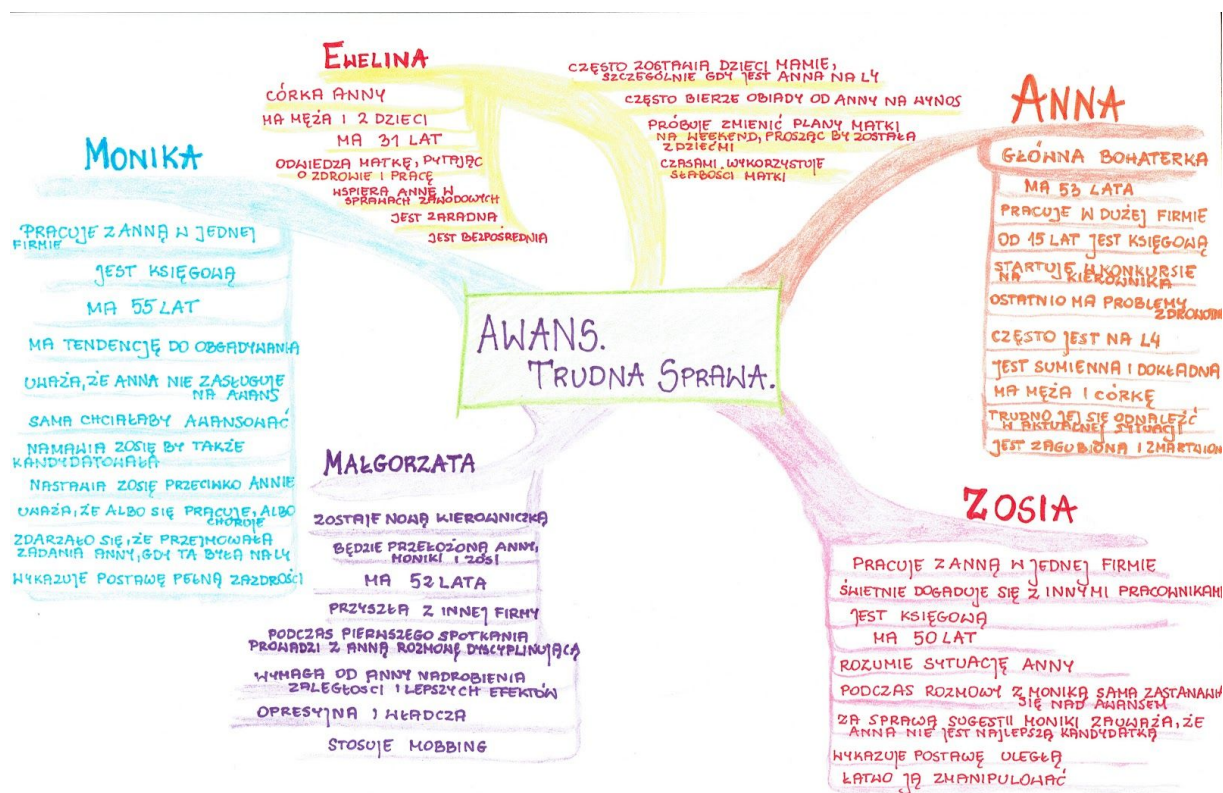 AWANS.
TRUDNA SPRAWA.
EWELINA
CÓRKA ANNY
MA MĘŻA I 2 DZIECI
MA 31 LAT
ODWIEDZA MATKĘ, PYTAJĄC
O ZDROWIE I PRACĘ
WSPIERA ANNĘ W
SPRAWACH ZAWODOWYCH
JEST ZARADNA
JEST BEZPOŚREDNIA
CZĘSTO ZOSTAWIA DZIECI MAMIE,
SZCZEGÓLNIE GDY JEST ANNA NA L4
CZĘSTO BIERZE OBIADY OD ANNY NA WYNOS
PRÓBUJE ZMIENIĆ PLANY MATKI
NA WEEKEND, PROSZĄC BY ZOSTAŁA
Z DZIEĆMI
CZASAMI WYKORZYSTUJE
SŁABOŚCI MATKI
ANNA
GŁÓWNA BOHATERKA
MA 53 LATA
PRACUJE W DUŻEJ FIRMIE
OD 15 LAT JEST KSIĘGOWĄ
STARTUJE W KONKURSIE
NA KIEROWNIKA
OSTATNIO MA PROBLEMY
ZDROWOTN
CZĘSTO JEST NA L4
JEST SUMIENNA I DOKŁADNA
MA MĘŻA I CÓRKĘ
TRUDNO JEJ SIĘ ODNALEŹĆ
W AKTUALNEJ SYTUACJI
JEST ZAGUBIONA I ZMARTWION
MONIKA
PRACUJE Z ANNĄ W JEDNEJ
FIRMIE
JEST KSIĘGOWĄ
MA 55 LAT
MA TENDENCJĘ DO OBGADYWANIA
UWAŻA, ŻE ANNA NIE ZASŁUGUJE
NA AWANS
SAMA CHCIAŁABY AWANSOWAĆ
NAMAWIA ZOSIĘ BY TAKŻE
KANDYDATOWAŁA
NASTAWIA ZOSIĘ PRZECIWKO ANNIE
UWAŻA, ŻE ALBO SIĘ PRACUJE, ALBO
CHORUJE
ZDARZAŁO SIĘ, ŻE PRZEJMOWAŁA
ZADANIA ANNY, GDY TA BYŁA NA L4
WYKAZUJE POSTAWĘ PEŁNĄ ZAZDROŚCI
MAŁGORZATA
ZOSTAJE NOWĄ KIEROWNICZKĄ
BĘDZIE PRZEŁOŻONĄ ANNY,
MONIKI I ZOSI
MA 52 LATA
PRZYSZŁA Z INNEJ FIRMY
PODCZAS PIERWSZEGO SPOTKANIA
PROWADZI Z ANNĄ ROZMOWĘ DYSCYPLINUJĄCĄ
WYMAGA OD ANNY NADROBIENIA
ZALEGŁOŚCI I LEPSZYCH EFEKTÓW
OPRESYJNA I WŁADCZA
STOSUJE MOBBING
ZOSIA
PRACUJE Z ANNĄ W JEDNEJ FIRMIE
ŚWIETNIE DOGADUJE SIĘ Z INNYMI PRACOWNIKAMI
JEST KSIĘGOWĄ
MA 50 LAT
ROZUMIE SYTUACJĘ ANNY
PODCZAS ROZMOWY Z MONIKĄ SAMA ZASTANAWIA
SIĘ NAD AWANSEM
ZA SPRAWĄ SUGESTII MONIKI ZAUWAŻA, ŻE
ANNA NIE JEST NAJLEPSZĄ KANDYDATKĄ
WYKAZUJE POSTAWĘ ULEGŁĄ
ŁATWO JĄ ZMANIPULOWAĆ